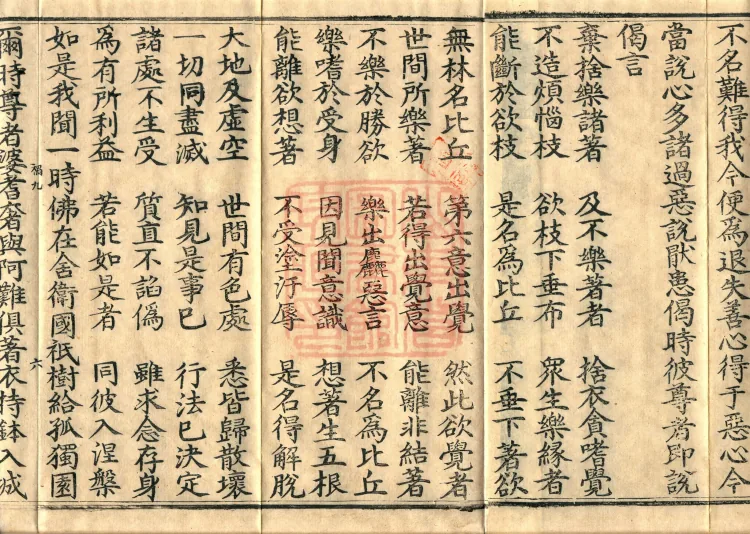 不名難得我今便為退失善心得于惡心今
當說心多諸過惡說猒患偈時彼尊者即說
偈言
棄捨樂諸著 及不樂著者 捨衣貪嗜覺
不造煩惱枝 欲枝下垂布 衆生樂緣者
能斷於欲枝 是名為比丘 不垂下著欲
無林名比丘 第六意出覺 然此欲覺者
世間所樂著 若得出覺意 能離非結著
不樂於勝欲 樂出麤惡言 不名為比丘
樂嗜於受身 因見聞意識 想著生五根
能離欲想著 不受塗汙辱 是名得解脫
大地及虛空 世間有色處 悉皆歸散壞
一切同盡滅 知見是事已 行法已決定
諸處不生受 質直不諂偽 雖求念存身
為有所利益 若能如是者 同彼入涅槃
如是我聞一時佛在舍衛國祇樹給孤獨園
福九 六
爾時尊者婆耆奢與阿難俱著衣持鉢入城